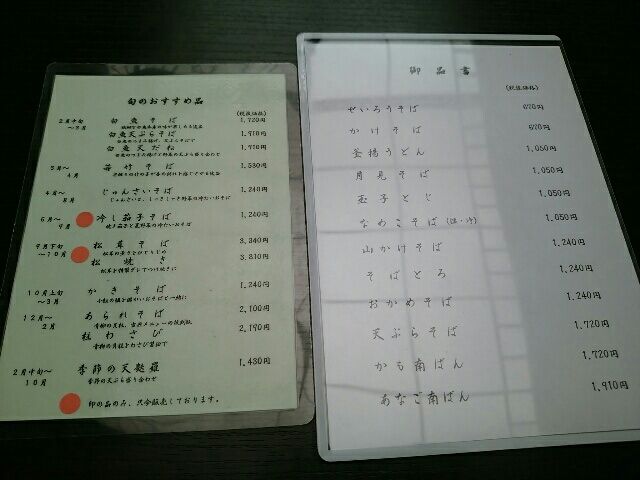 旬のおすすめ品
(税抜価格)
2月中旬
～3月
白魚そば
1,720円
白魚天ぷらそば
1,910円
白魚天だね
1,710円
3月～
4月
若竹そば
1,530円
4月～
8月
じゅんさいそば
1,240円
6月～
9月
冷し茄子そば
1,240円
焼き茄子と夏野菜の冷たいおそば
9月下旬
～10月
松茸そば
3,340円
松焼き
3,810円
10月上旬
～3月
かきそば
1,240円
12月～
2月
あられそば
2,100円
柱わさび
2,190円
青柳の貝柱とわさび醤油で
2月中旬～
10月
季節の天麩羅
1,430円
季節の天ぷら盛り合わせ
印の品のみ、只今販売しております。
御品書
(税抜価格)
せいろうそば 670円
かけそば 670円
釜揚うどん 1,050円
月見そば 1,050円
玉子とじ 1,050円
なめこそば(温・冷) 1,050円
山かけそば 1,240円
そばとろ 1,240円
おかめそば 1,240円
天ぷらそば 1,720円
かも南ばん 1,720円
あなご南ばん 1,910円